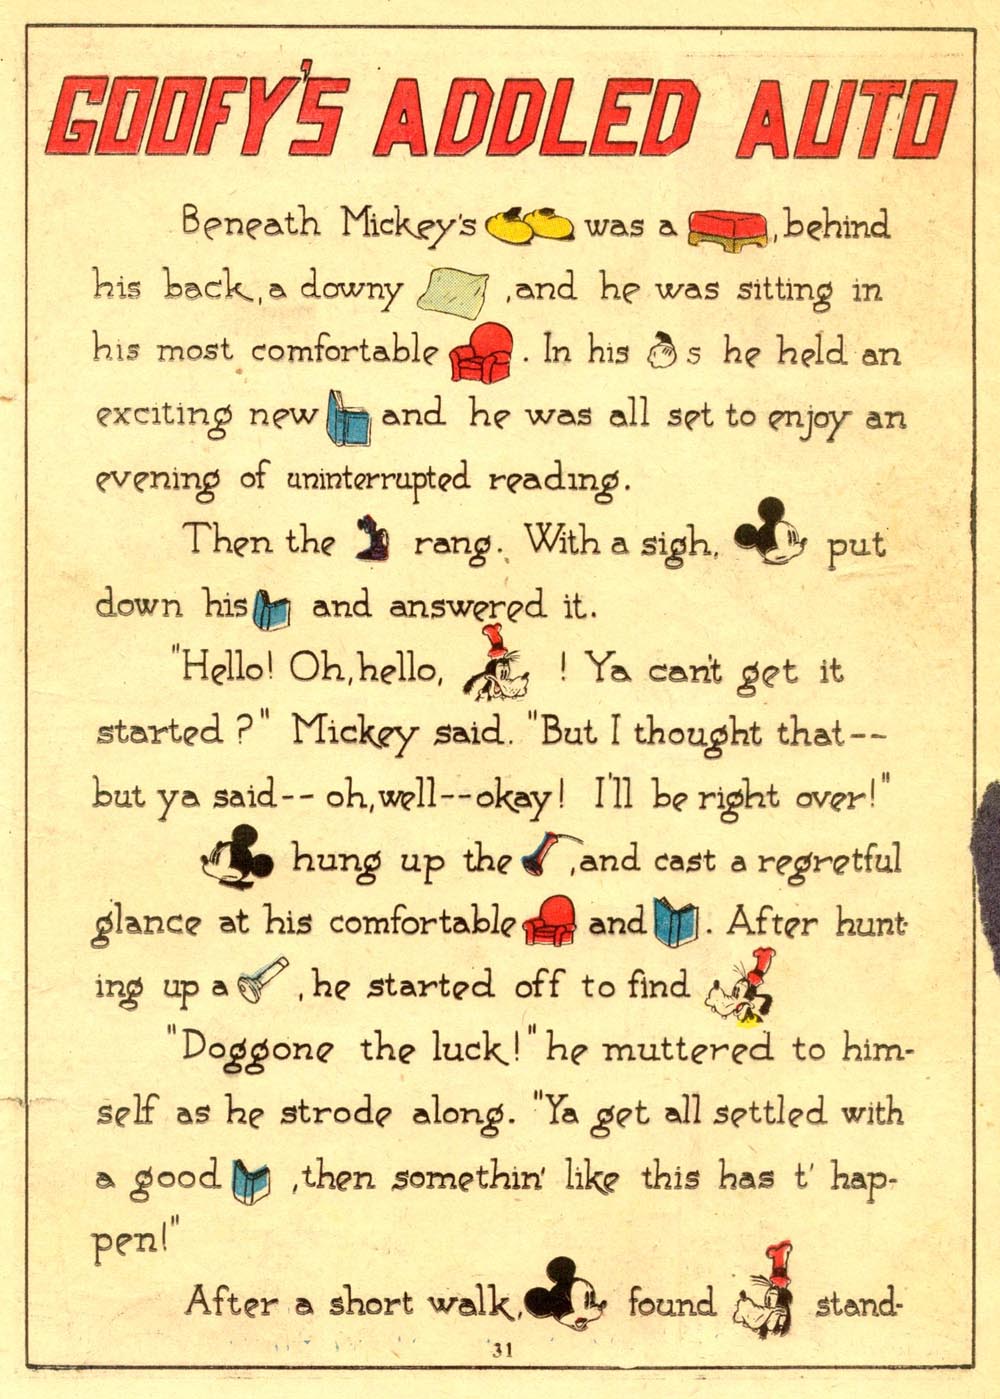 GOOFY'S ADDLED AUTO
Beneath Mickey's was a , behind
his back, a downy , and he was sitting in
his most comfortable . In his s he held an
exciting new and he was all set to enjoy an
evening of uninterrupted reading.
Then the rang. With a sigh, put
down his and answered it.
"Hello! Oh, hello, ! Ya can't get it
started?" Mickey said. "But I thought that--
but ya said-- oh, well--okay! I'll be right over!"
hung up the , and cast a regretful
glance at his comfortable and . After hunt-
ing up a , he started off to find
"Doggone the luck!" he muttered to him-
self as he strode along. "Ya get all settled with
a good , then somethin' like this has t' hap-
pen!"
After a short walk, found stand-
31